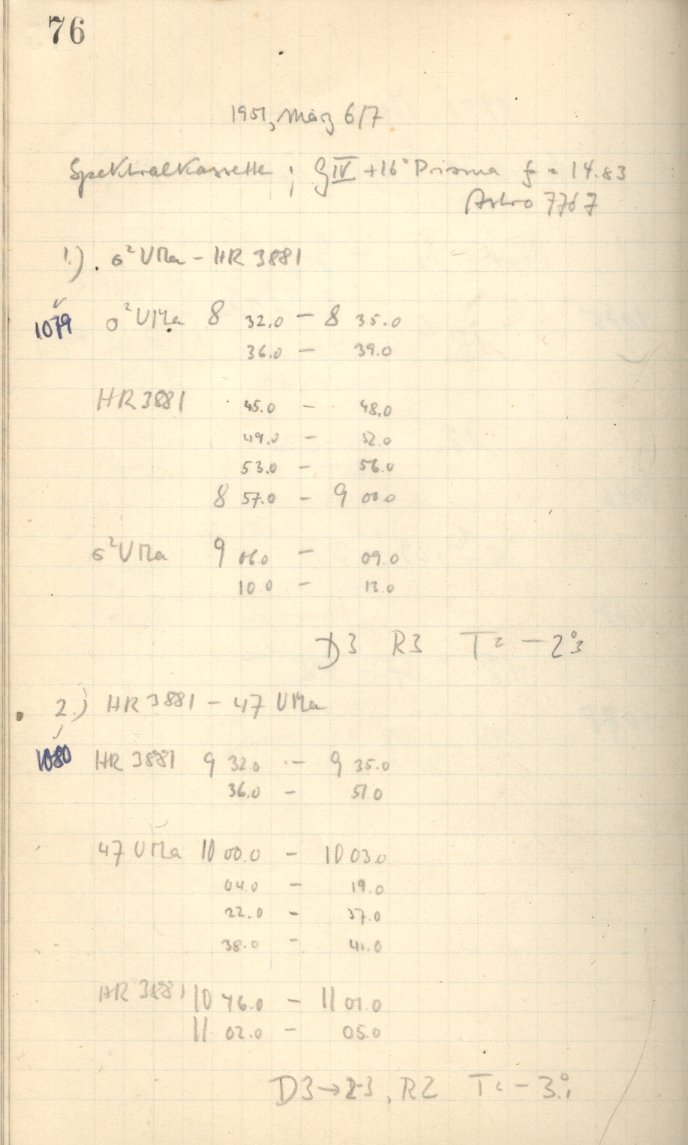 76
1951, März 6/7
Spektralkassette ; gIV + 16° Prisma f = 14.83
Astro 7767
1.) . σ² UMa - HR 3881
1079 σ² UMa 8 32.0 - 8 35.0
36.0 - 39.0
HR 3881 45.0 - 48.0
49.0 - 52.0
53.0 - 56.0
8 57.0 - 9 00.0
σ² UMa 9 06.0 - 09.0
10.0 - 13.0
D3 R3 T = -2°.3
2.) HR 3881 - 47 UMa
1080 HR 3881 9 32.0 - 9 35.0
36.0 - 51.0
47 UMa 10 00.0 - 10 03.0
04.0 - 19.0
22.0 - 37.0
38.0 - 41.0
HR 3881 10 46.0 - 11 01.0
11 02.0 - 05.0
D3 → 2-3, R2 T = -3°.1